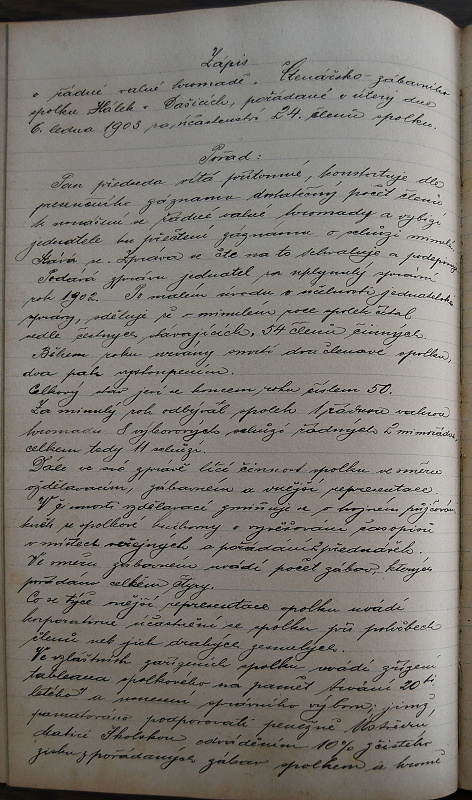 Zápis
o řádné valné hromadě "Čtenářsko-zábavního
spolku Hálek v Dašicích, pořádané v úterý dne
6. ledna 1903 za účastenství 24. členů spolku.
Pořad:
Pan předseda vítá přítomné, konstatuje dle
presenčního záznamu dostatečný počet členů
k usnášení se řádné valné hromady a vybízí
jednatele ku přečtení záznamu o schůzi minulé
se. Zpráva se čte na to schvaluje a podepisuje
Podává zprávu jednatel za uplynulý správní
rok 1902. Po malém úvodu o účelnosti jednatelské
zprávy, sděluje že v minulém roce spolek čítal
vedle čestných, stávajících, 54 členů činných.
Během roku urváni smrtí dva členové spolku,
dva pak vystoupením.
Celkový stav jeví se koncem roku číslem 50.
Za minulý rok odbýval spolek 1 řádnou valnou
hromadu 8 výborových schůzí řádných 2 mimořádné,
celkem tedy 11 schůzí.
Dále ve své zprávě líčí činnost spolku ve směru
vzdělávacím, zábavném a vnější representace.
V činnosti vzdělávací zmiňuje se o hojném půjčování
knih ze spolkové knihovny o vyvěšování časopisů
v místech veřejných a pořádání 2 přednášek.
Ve směru zábavném uvádí počet zábav, kterých
pořádáno celkem čtyry.
Co se týče vnější representace spolku uvádí
korporativní účastnění se spolku při pohřbech
členů neb jich drahých zesnulých.
Ve zvláštních zařízeních spolku uvádí zřízení
tableaua spolkového na paměť trvání 20ti
letého a usnesení správního výboru jímž,
pamatováno podporovati peněžně Ústřední
Matici Školskou odváděním 10% z čistého
zisku z pořádaných zábav spolkem a hromě